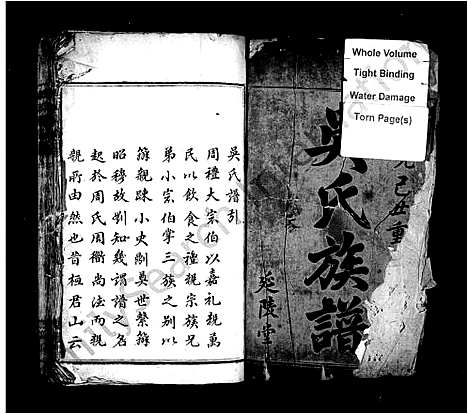 Whole Volume
Tight Binding
Water Damage
Torn Page(s)
己丑重
吳氏族譜
延陵堂
吳氏譜引
周禮大宗伯以嘉禮親萬
民以飲食之禮親宗族兄
弟小宗伯掌三族之別以
辨親踈小史則奠世繫辨
昭穆故劉知幾謂譜之名
起於周氏周衢尚法而親
親所由然也昔桓君山云